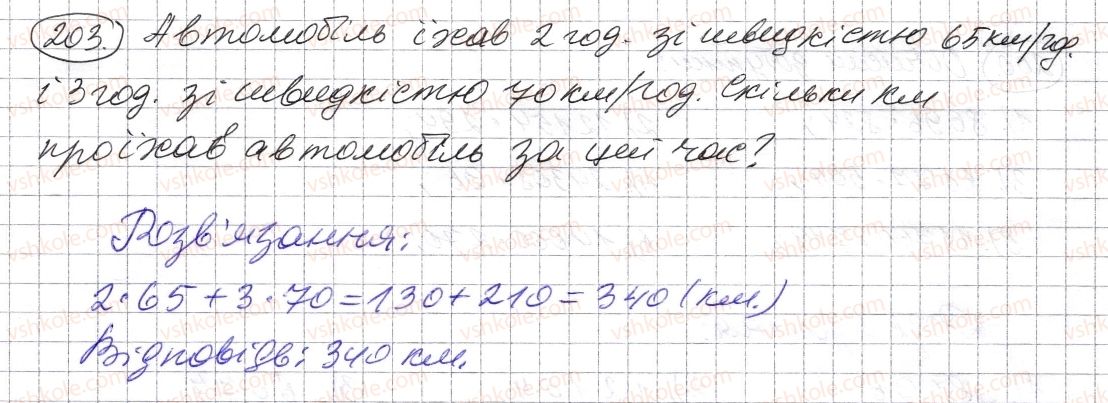 203. Автомобіль їхав 2 год. зі швидкістю 65 км/год.
і 3 год. зі швидкістю 70 км/год. Скільки км
проїхав автомобіль за цей час?
Розв'язання:
2·65+3·70=130+210=340 (км.)
Відповідь: 340 км.